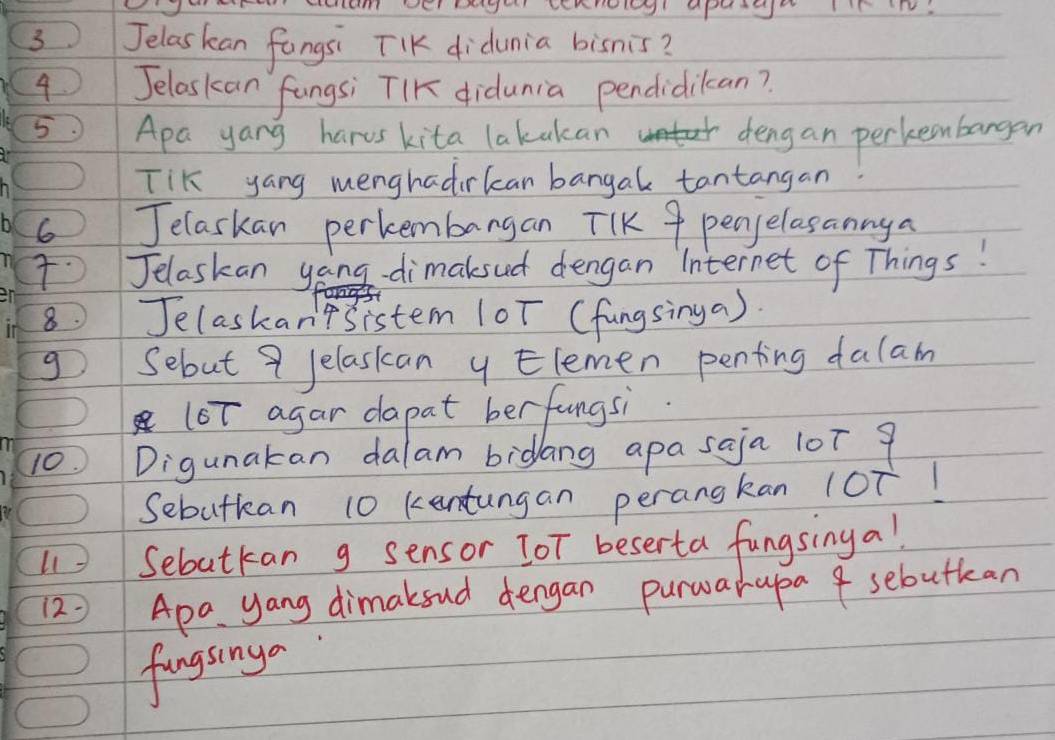 Digunakan dalam berbagai teknologi apa saja TIK ini?
3. Jelaskan fungsi TIK didunia bisnis?
4. Jelaskan fungsi TIK didunia pendidikan?
5. Apa yang harus kita lakukan dengan perkembangan
TIK yang menghadirkan bangak tantangan.
6 Jelaskan perkembangan TIK & penjelasannya
7. Jelaskan yang dimaksud dengan Internet of Things!
8. Jelaskan sistem IOT (fungsinya).
9 Sebut & jelaskan 4 Elemen penting dalam
IOT agar dapat berfungsi.
10. Digunakan dalam bidang apa saja IOT &
Sebutkan 10 kentungan perangkan IOT!
11. Sebutkan 9 sensor IOT beserta fungsinya!
12. Apa yang dimaksud dengan purwarupa & sebutkan
fungsinya